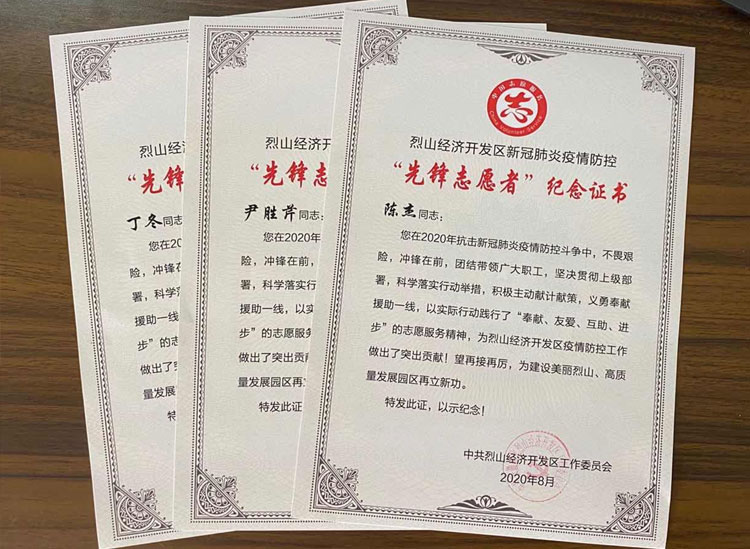 烈山经济
“先锋
丁冬同志:
您在2020年
险,冲锋在前
署,科学落实
援助一线,
步”的志愿
做出了突出
量发展园区
特发
烈山经济开发
“先锋志
尹胜芹同志:
您在2020年
险,冲锋在前,
署,科学落实行
援助一线,以实
步”的志愿服务
做出了突出贡献
量发展园区再
特发此证,
中国志愿服务
志
China Volunteer Service
烈山经济开发区新冠肺炎疫情防控
“先锋志愿者”纪念证书
陈杰同志:
您在2020年抗击新冠肺炎疫情防控斗争中,不畏艰
险,冲锋在前,团结带领广大职工,坚决贯彻上级部
署,科学落实行动举措,积极主动献计献策,义勇奉献
援助一线,以实际行动践行了“奉献、友爱、互助、进
步”的志愿服务精神,为烈山经济开发区疫情防控工作
做出了突出贡献!望再接再厉,为建设美丽烈山、高质
量发展园区再立新功。
特发此证,以示纪念!
中共烈山经济开发区工作委员会
2020年8月